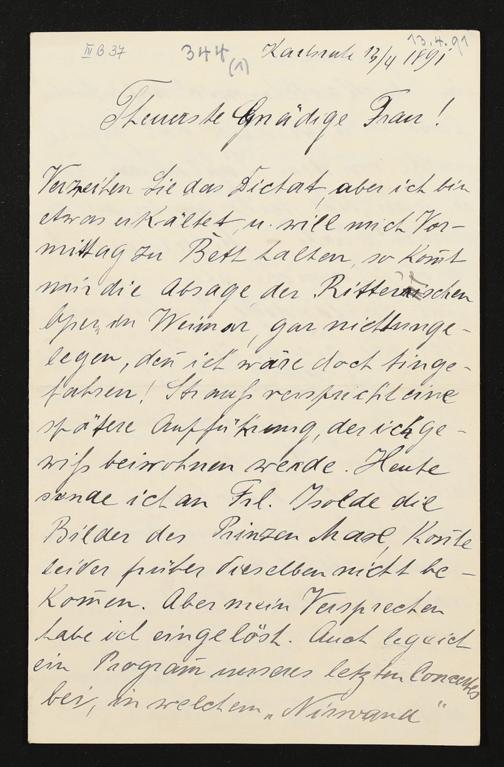 IV B 37
344
(1)
13.4.91
Karlsruhe 13/4 1891
Theuerste Gnädige Frau!
Verzeihen Sie das Dictat, aber ich bin
etwas erkältet, u. will mich Vor-
mittag zu Bett halten, so kom̄t
mir die Absage der Ritterischen
Oper, in Weimar, gar nicht unge-
legen, den̄ ich wäre doch hinge-
fahren! Strauß verspricht eine
spätere Aufführung, der ich ge-
wiß beiwohnen werde. Heute
sende ich an Frl. Isolde die
Bilder des Prinzen Max, kon̄te
leider früher dieselben nicht be-
kom̄en. Aber mein Versprechen
habe ich eingelöst. Auch lege ich
ein Program̄ unseres letzten Concertes
bei, in welchem „Nirwana"